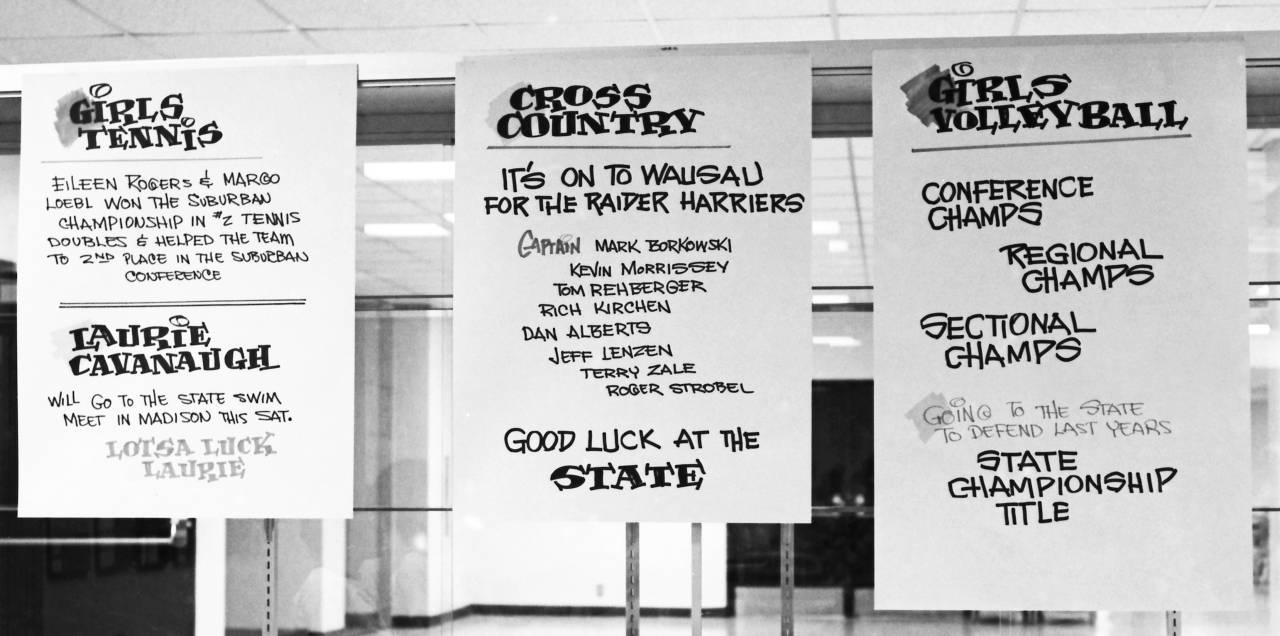 GIRLS
TENNIS
EILEEN ROGERS & MARGO
LOEBL WON THE SUBURBAN
CHAMPIONSHIP IN #2 TENNIS
DOUBLES & HELPED THE TEAM
TO 2ND PLACE IN THE SUBURBAN
CONFERENCE
LAURIE
CAVANAUGH
WILL GO TO THE STATE SWIM
MEET IN MADISON THIS SAT.
LOTSA LUCK
LAURIE
CROSS
COUNTRY
IT'S ON TO WAUSAU
FOR THE RAIDER HARRIERS
CAPTAIN MARK BORKOWSKI
KEVIN MORRISSEY
TOM REHBERGER
RICH KIRCHEN
DAN ALBERTS
JEFF LENZEN
TERRY ZALE
ROGER STROBEL
GOOD LUCK AT THE
STATE
GIRLS
VOLLEYBALL
CONFERENCE
CHAMPS
REGIONAL
CHAMPS
SECTIONAL
CHAMPS
GOING TO THE STATE
TO DEFEND LAST YEARS
STATE
CHAMPIONSHIP
TITLE